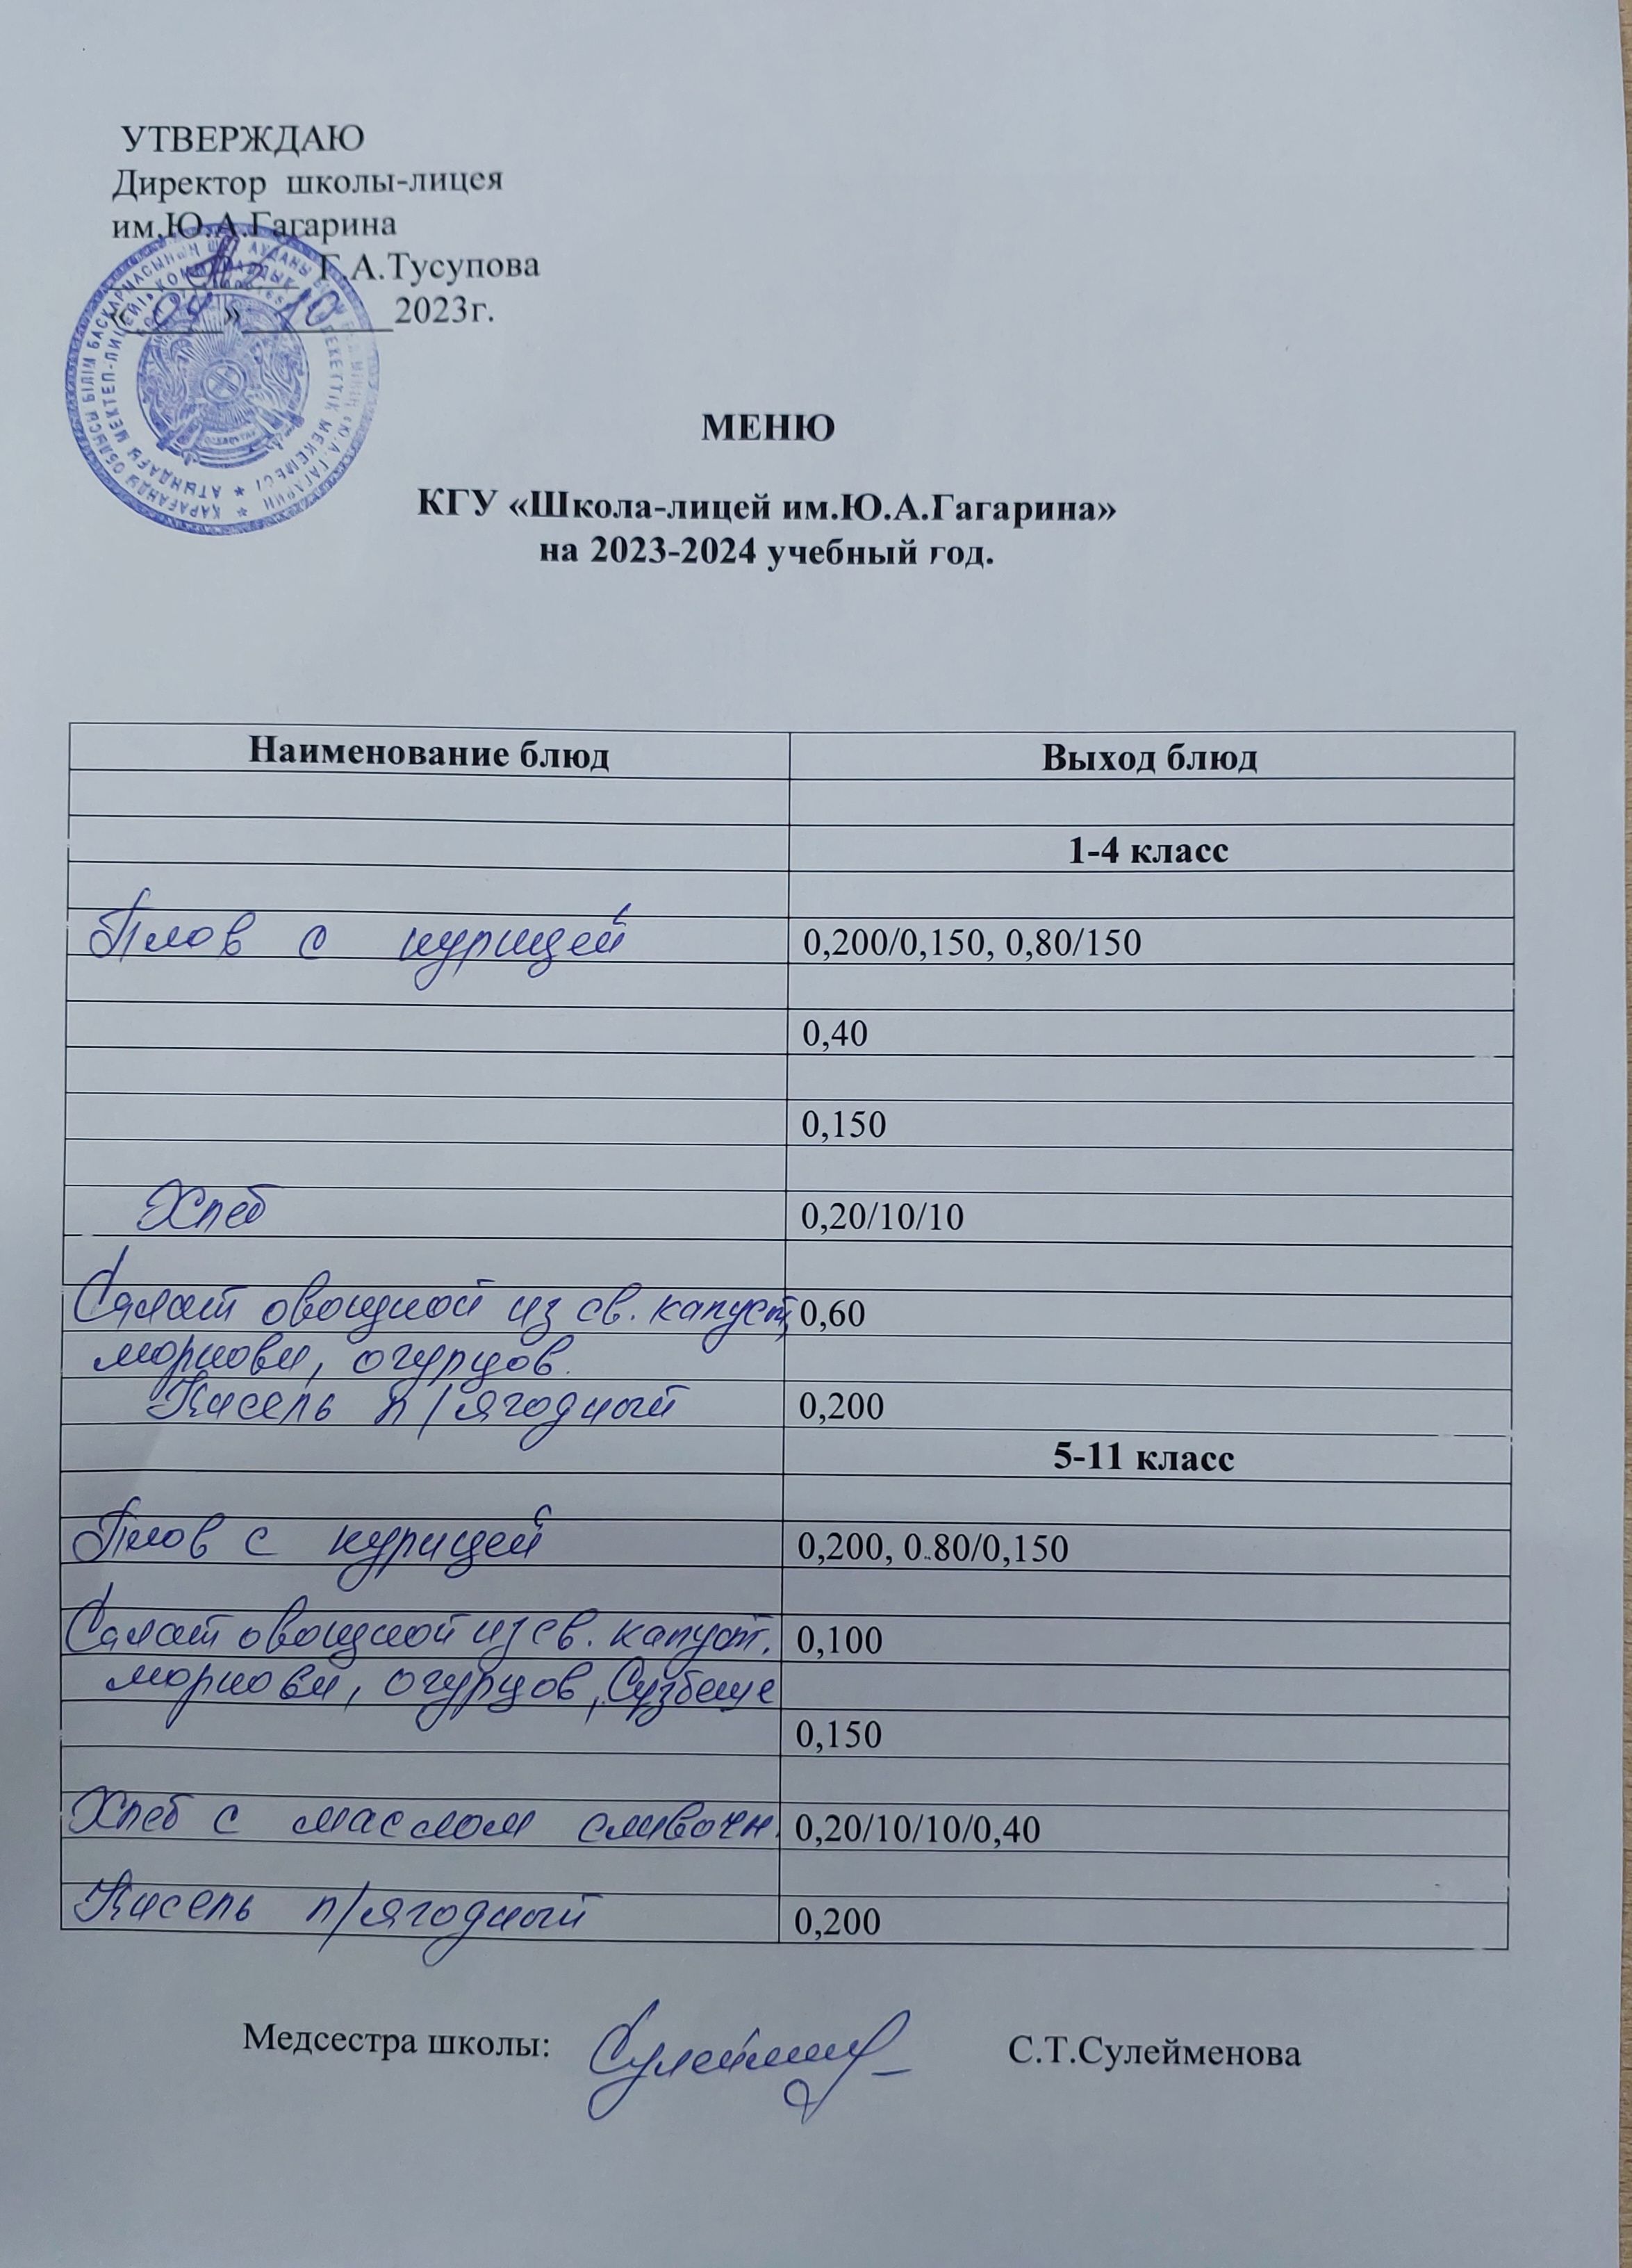 УТВЕРЖДАЮ
Директор школы-лицея
им.Ю.А.Гагарина
Г.А.Тусупова
« » 10 2023г.
МЕНЮ
КГУ «Школа-лицей им.Ю.А.Гагарина»
на 2023-2024 учебный год.
Наименование блюд Выход блюд
1-4 класс
Плов с курицей 0,200/0,150, 0,80/150
0,40
0,150
Хлеб 0,20/10/10
Салат овощной из св. капуст, 0,60
моркови, огурцов.
Кисель п/ягодный 0,200
5-11 класс
Плов с курицей 0,200, 0.80/0,150
Салат овощной из св. капуст. 0,100
моркови, огурцов,
0,150
Хлеб с маслом сливочн. 0,20/10/10/0,40
Кисель п/ягодный 0,200
Медсестра школы: С.Т.Сулейменова